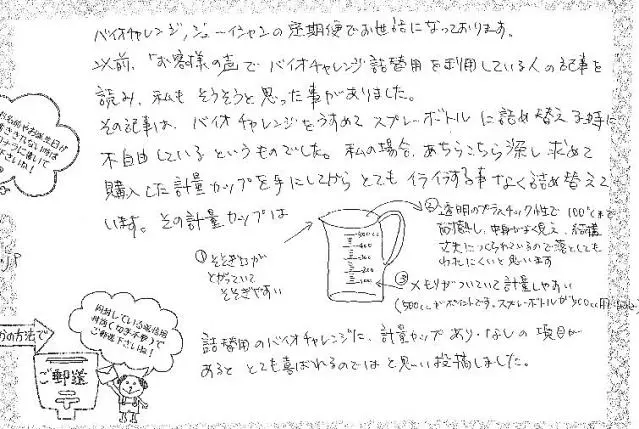 バイオチャレンジ,ジーイシャンの定期便でお世話になっております。
以前、「お客様の声」で バイオチャレンジ詰替用を利用している人の記事を
読み、私も そうそうと思った事がありました。
その記事は、バイオチャレンジをうすめて スプレーボトル に詰め替える時に
不自由している というものでした。私の場合、あちらこちら探し求めて
購入した計量カップを手にしてから とても イライラする事なく詰め替えて
います。その計量カップは
① そそぎ口が
とがっていて
そそぎやすい
500cc
400
300
200
100
② 透明のプラスチック性で 100℃まで
耐熱し、中身がよく見え、結構
丈夫につくられているので落としても
われにくいと思います
③ メモリがついていて計量しやすい
(500ccがポイントです。スプレーボトルが500cc用
詰替用のバイオチャレンジに、計量カップ あり・なしの項目が
あると とても喜ばれるのではと思い投稿しました。
お名前やお誕生日が
書ききれない時は
下さいね!
同封している返信用
封筒(切手不要)で
ご郵送下さいね!
の方法で
ご郵送
〒